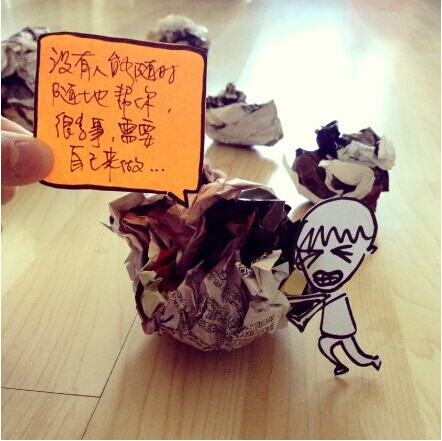 没有人能随时
随地帮你,
很多事,需要
自己来做...